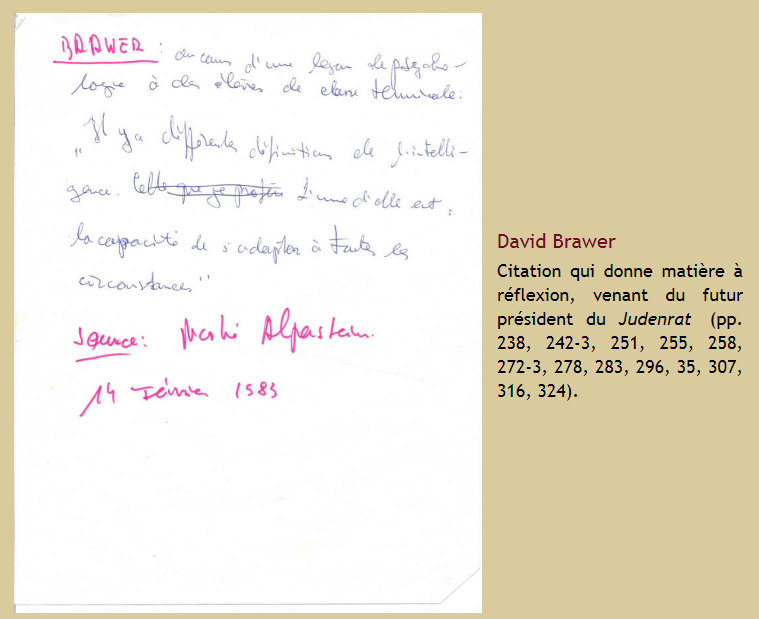 BRAWER : au cours d'une leçon de psycho-
logie à des élèves de classe terminale :
"Il y a différentes définitions de l'intelli-
gence. Celle que je préfère L'une d'elle est :
la capacité de s'adapter à toutes les
circonstances"
Source : Alperstein.
14 Février 1983
David Brawer
Citation qui donne matière à
réflexion, venant du futur
président du Judenrat (pp.
238, 242-3, 251, 255, 258,
272-3, 278, 283, 296, 35, 307,
316, 324).